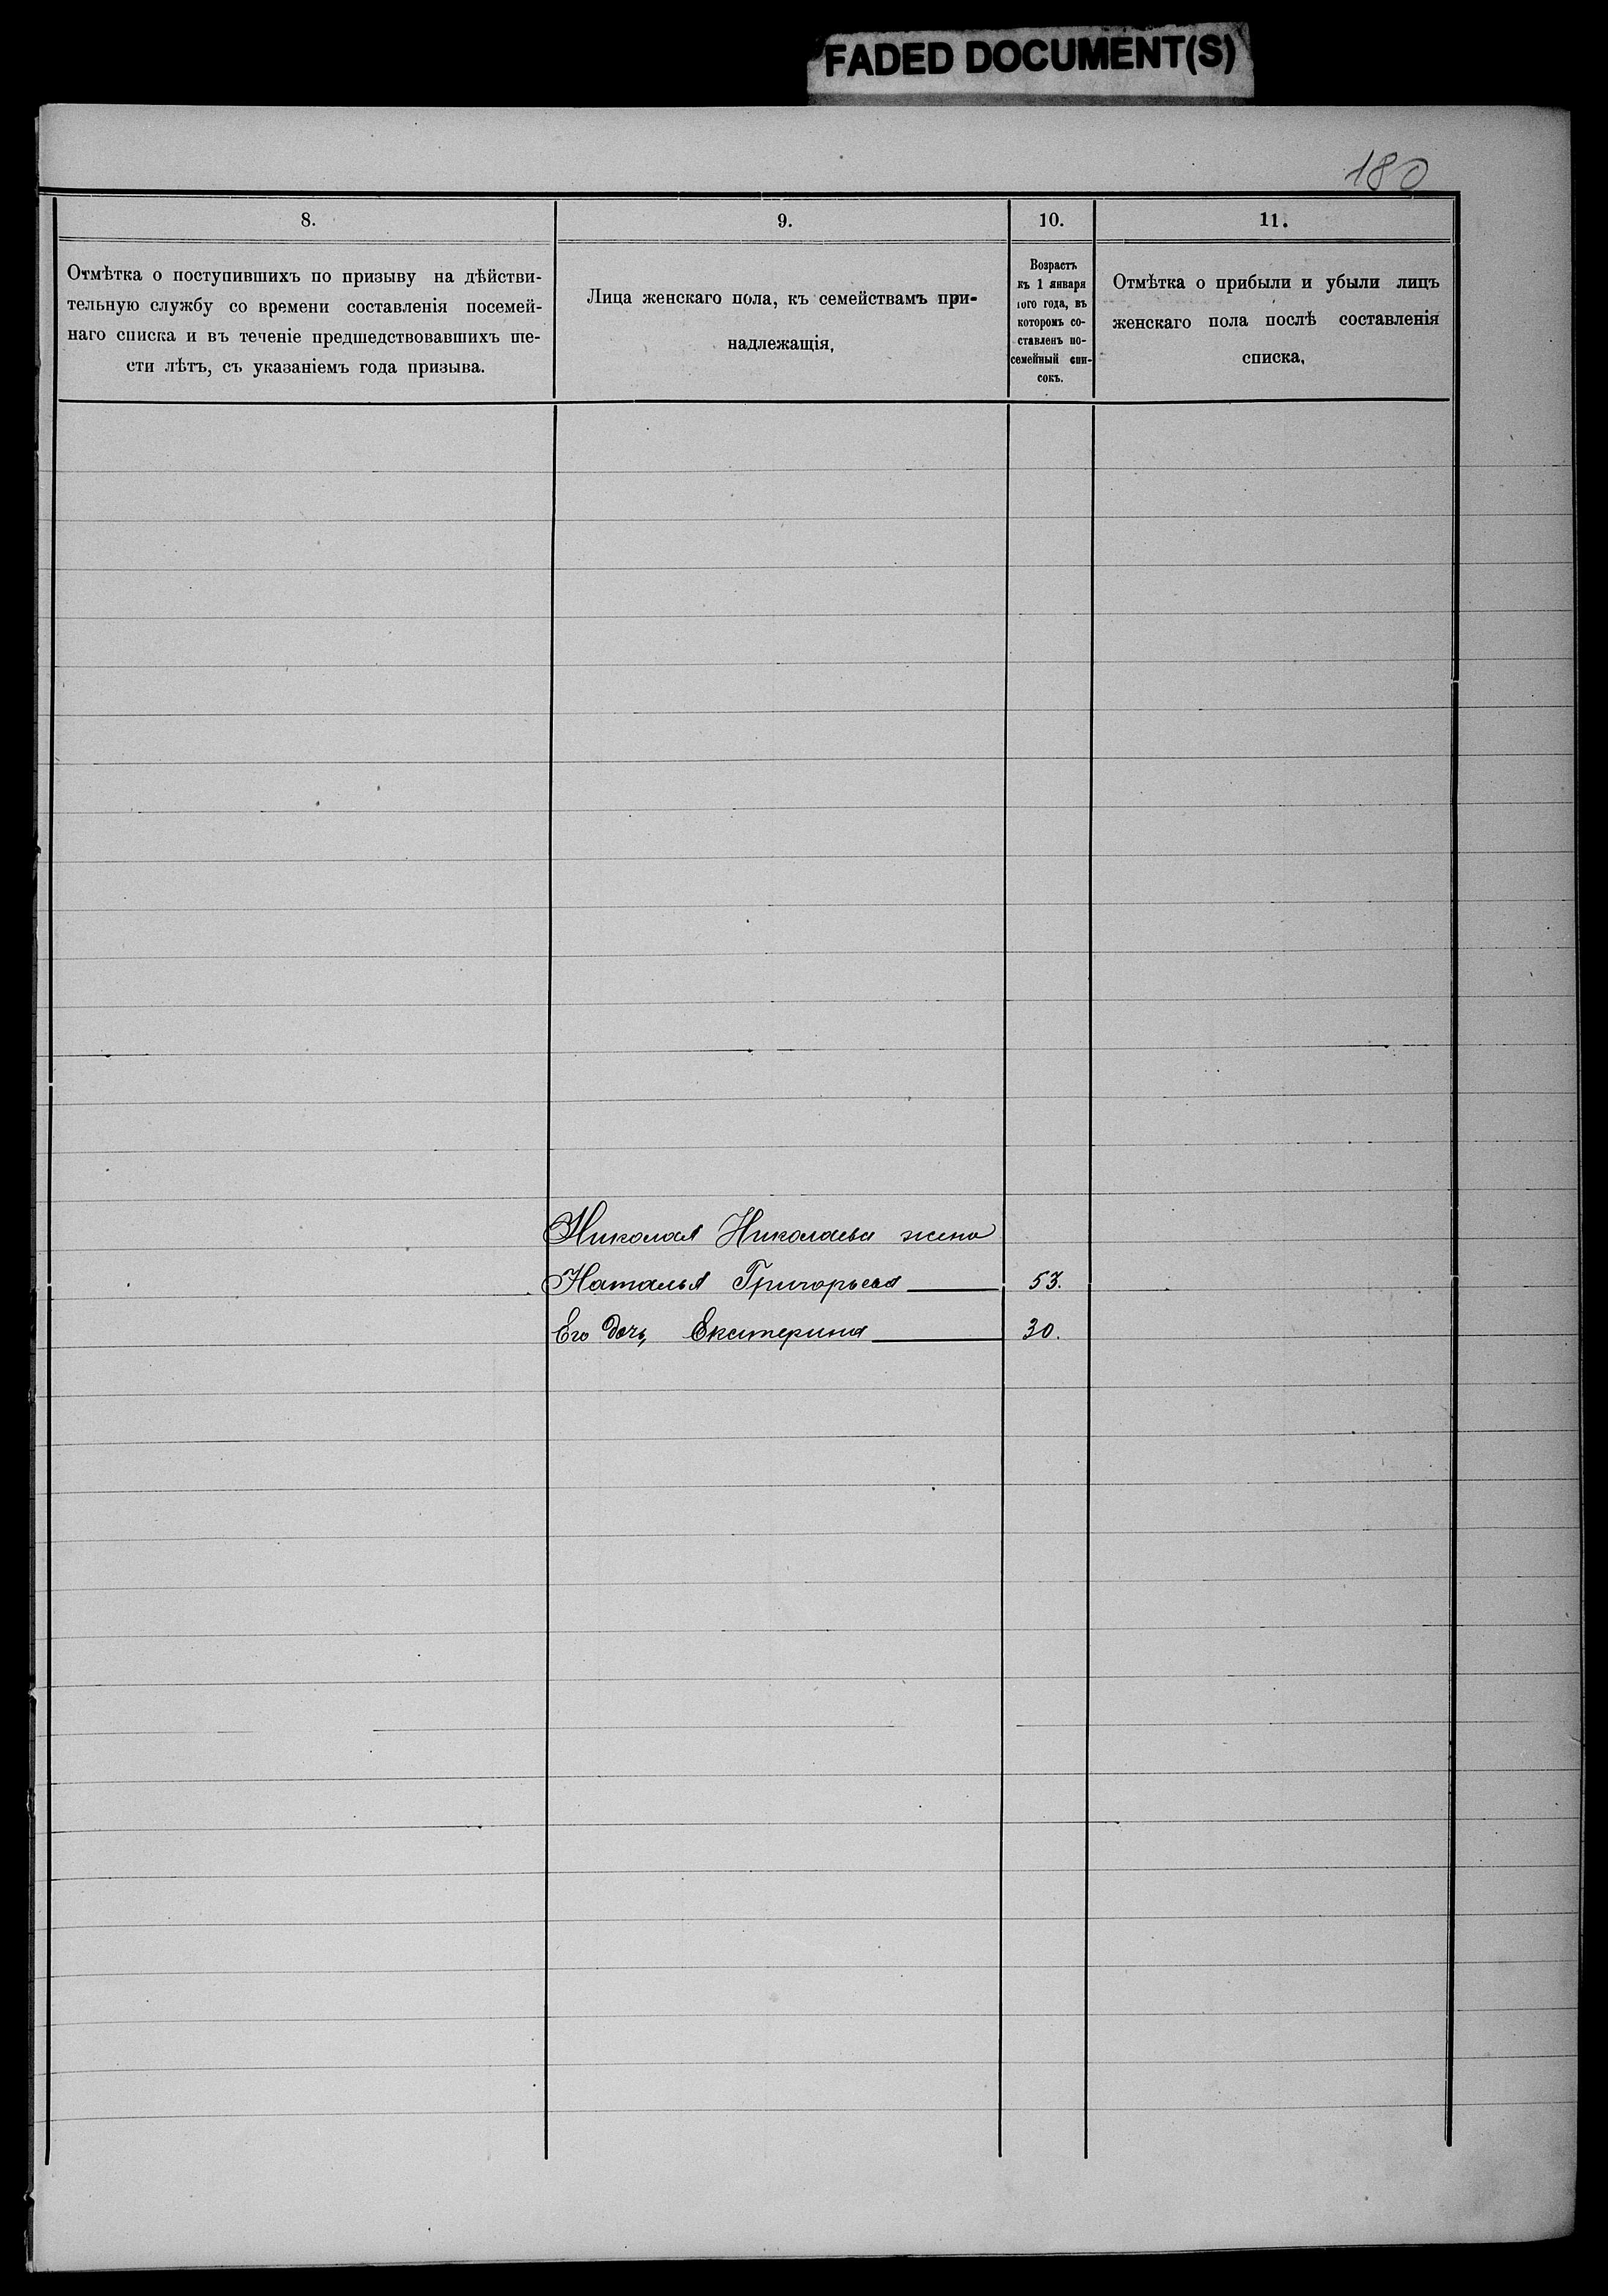 FADED DOCUMENT(S)
180
8.
9.
10.
11.
Отмѣтка о поступившихъ по призыву на дѣйстви-
тельную службу со времени составленія посемей-
наго списка и въ теченіе предшедствовавшихъ ше-
сти лѣтъ, съ указаніемъ года призыва.
Лица женскаго пола, къ семействамъ при-
надлежащія,
Возрастъ
къ 1 января
того года, въ
которомъ со-
ставленъ по-
семейный спи-
сокъ.
Отмѣтка о прибыли и убыли лицъ
женскаго пола послѣ составленія
списка,
Николая Николаева жена
Наталья Григорьева 53.
Его дочь, Екатерина 30.